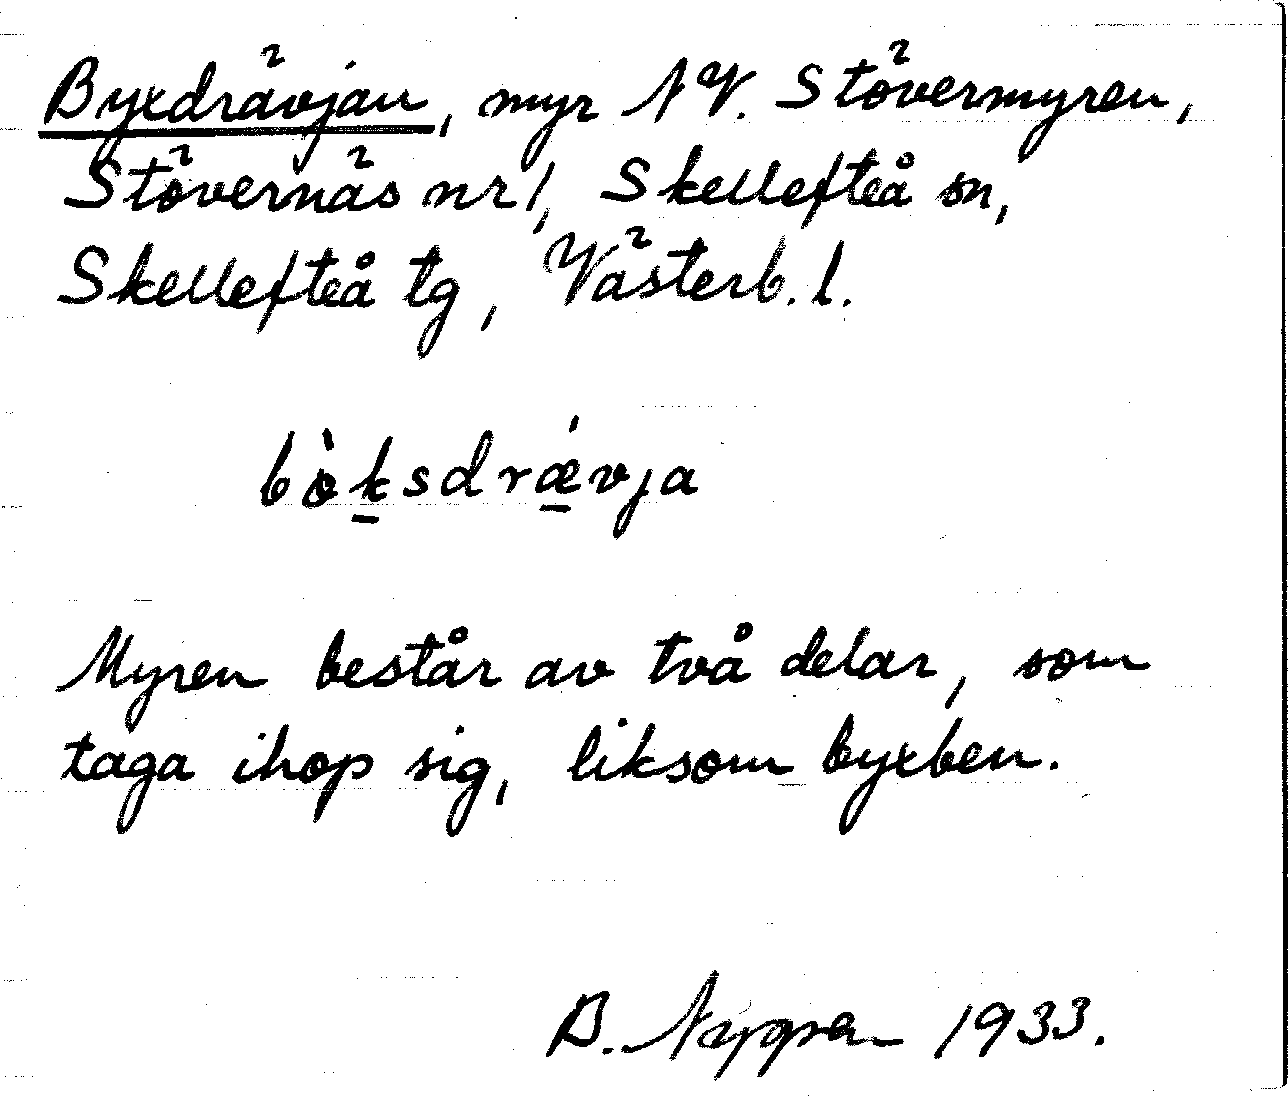 Byxdrävjan, myr NV. Stövermyren,
Stövernäs nr 1, Skellefteå sn,
Skellefteå tg, Västerb. l.
bòksdrǽvja
Myren består av två delar, som
taga ihop sig, liksom byxben.
B. Nygren 1933.